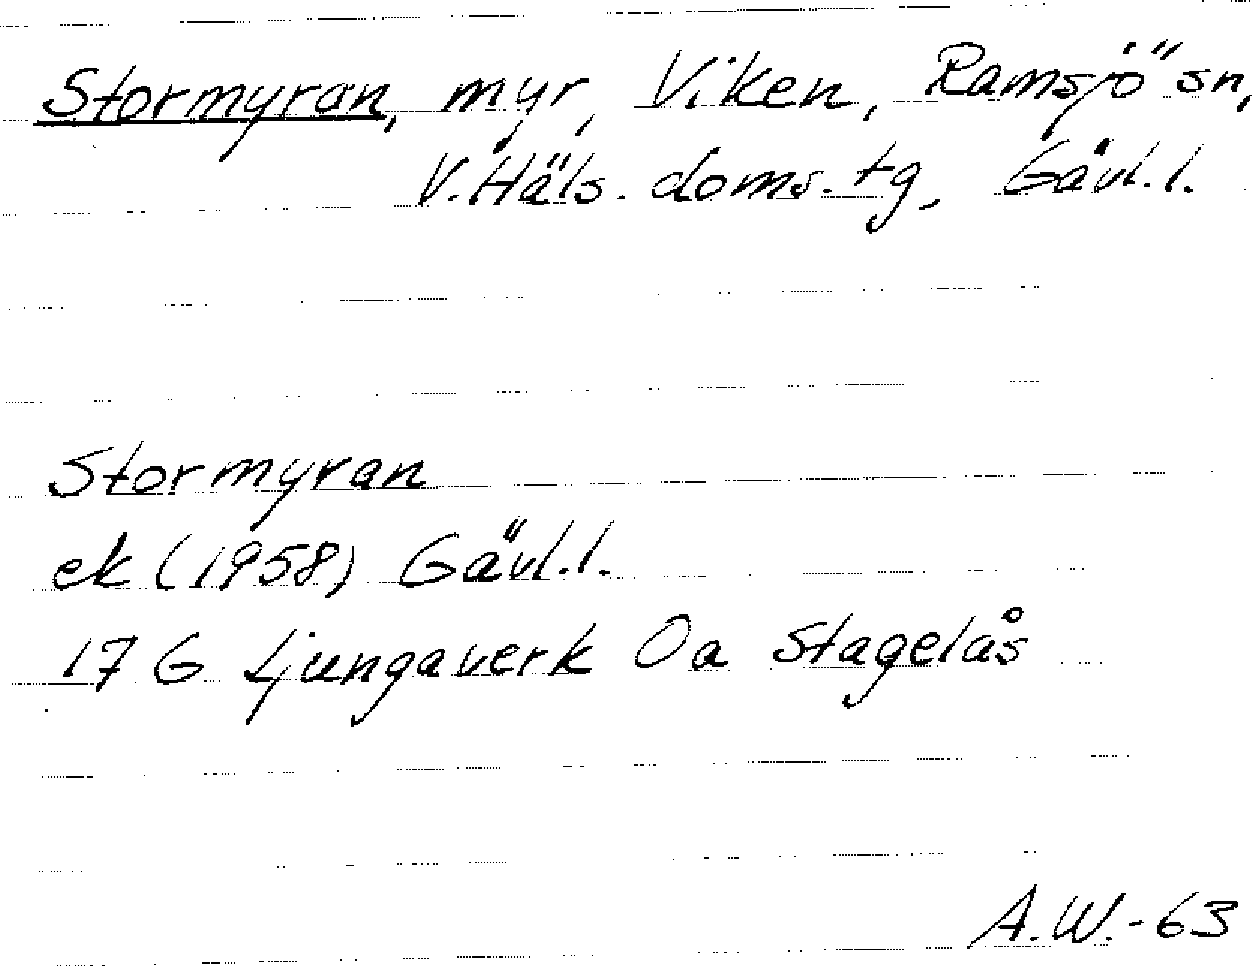 Stormyran, myr, Viken, Ramsjö sn,
V. Häls. doms.-tg, Gävl.l.
Stormyran
ek (1958) Gävl.l.
17 G Ljungaverk Oa Stagelås
A.W.-63